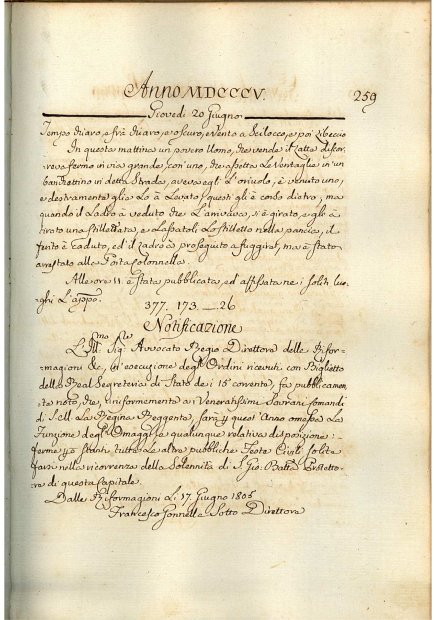 Anno MDCCCV. 259
Giovedi 20 Giugno
Tempo chiaro, e frà chiaro, e oscuro, e Vento a Scilocco, e poi Libeccio
In questa mattina un povero Uomo, che vende il latte di
fermo in via grande, con uno, che aspetta Le Vantaglie in un
in detta Strada, aveva egli L'orivolo, è venuto uno,
e destramente glie Lo à Levato, questi gli è corso dietro, ma
quando il Ladro à veduto che L'arrivava, si è girato, e gli à
tirato una stillettata, e Lasciatoli Lo stiletto nella pancia, il
ferito è caduto, ed il Ladro à proseguito a fuggirsi, ma è stato
arrestato alla Porta Colonnella.
Alle ore 11. è stata pubblicata, ed affissata ne i soliti luo-
ghi L'appo.
377. 173. — 26
Notificazione
L'Ill.mo Sig.re Avvocato Regio Direttore delle Rifor-
magioni &c, in esecuzione degl'Ordini ricevuti con Biglietto
della Real Segreteria di Stato de i 15 corrente, fa pubblicamen-
te noto, che, uniformemente a i Veneratissimi Sovrani Comandi
di S. M. La Regina Reggente, sarà per quest'Anno omessa La
Funzione degl'Omaggi, e qualunque relativa disposizione:
ferme però stanti, tutte Le altre pubbliche Feste Civili solite
farsi nella ricorrenza della Solennità di S. Gio: Batta Protetto-
re di questa Capitale.
Dalle Riformagioni Li 17. Giugno 1805
Francesco Gonnella Sotto Direttore